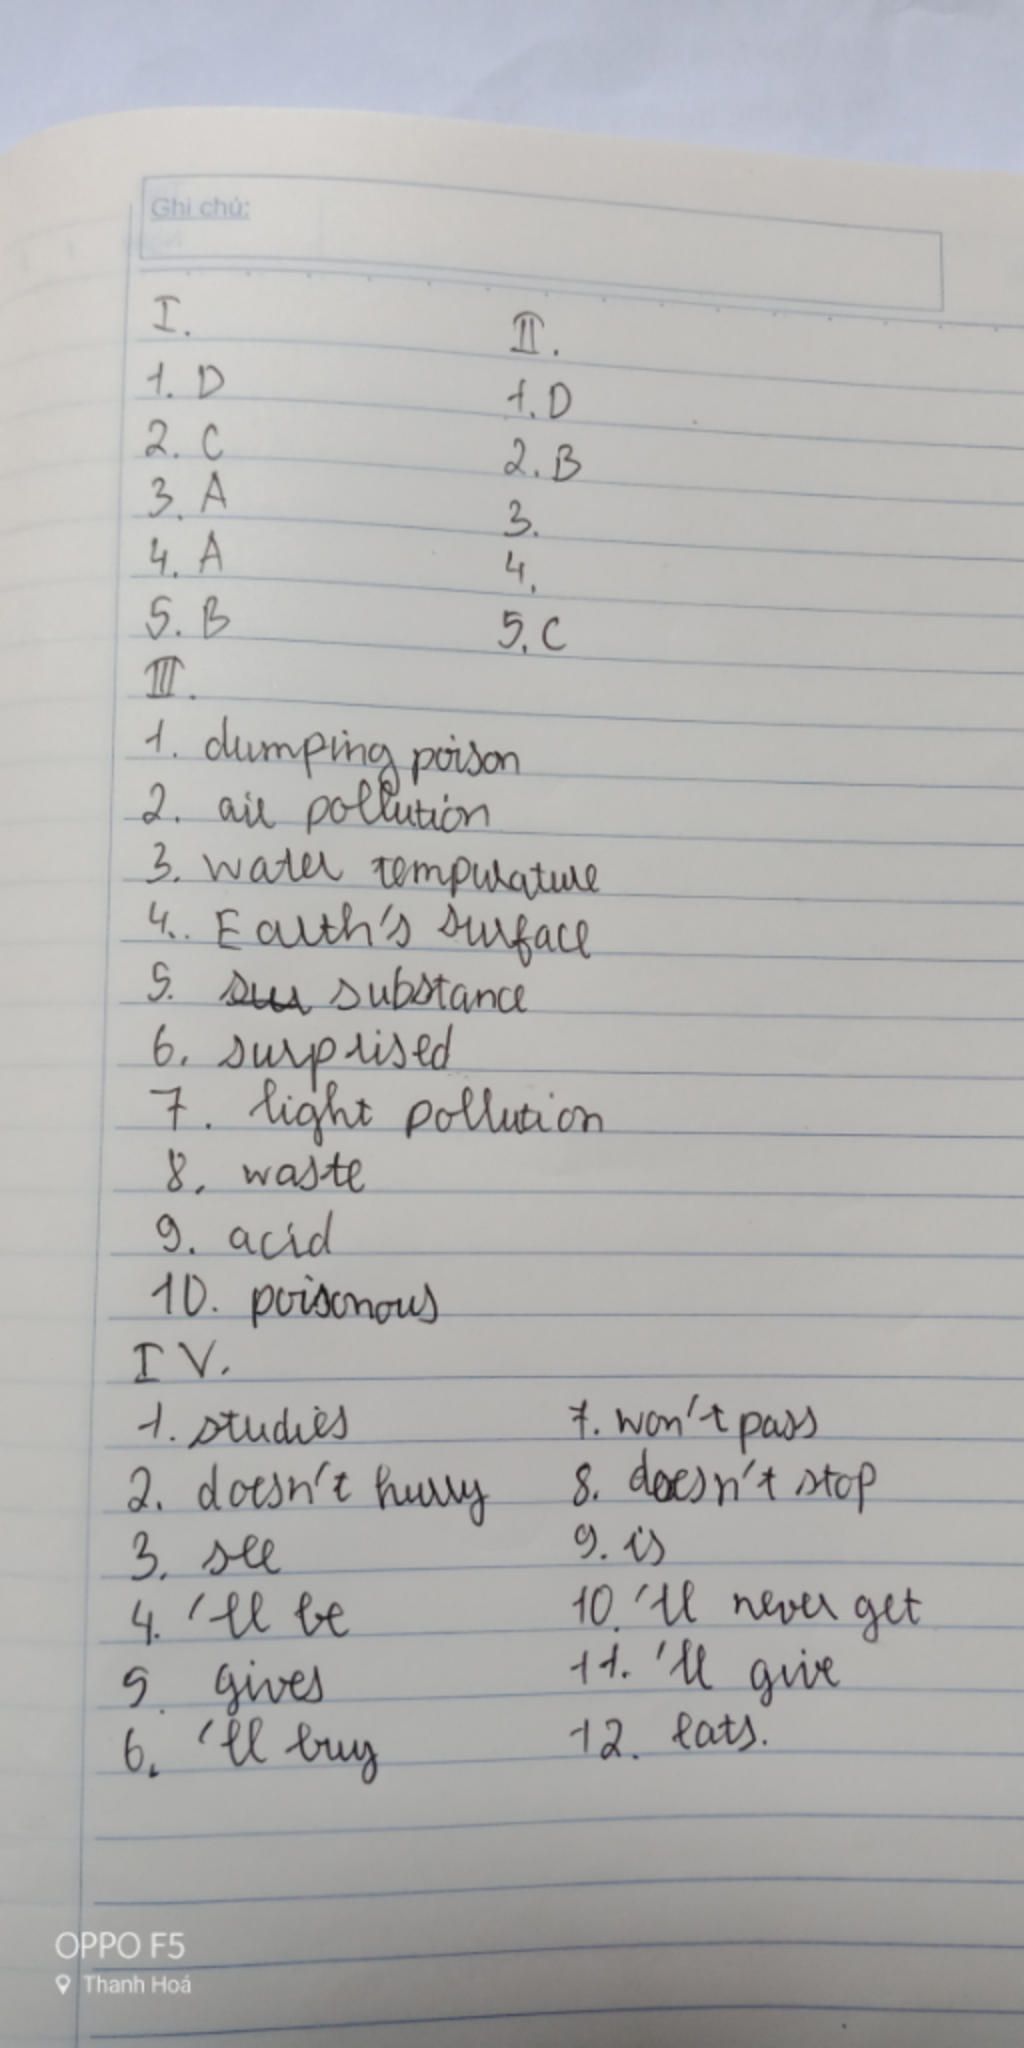 Ghi chú:
I.
1. D
2. C
3. A
4. A
5. B
II.
1. D
2. B
3.
4.
5. C
III.
1. dumping poison
2. air pollution
3. water temperature
4. Earth's surface
5. substance
6. surprised
7. light pollution
8. waste
9. acid
10. poisonous
IV.
1. studies
2. doesn't hurry
3. see
4. 'll be
5. gives
6. 'll buy
7. won't pass
8. doesn't stop
9. is
10. 'll never get
11. 'll give
12. eats.
OPPO F5
Thanh Hoá